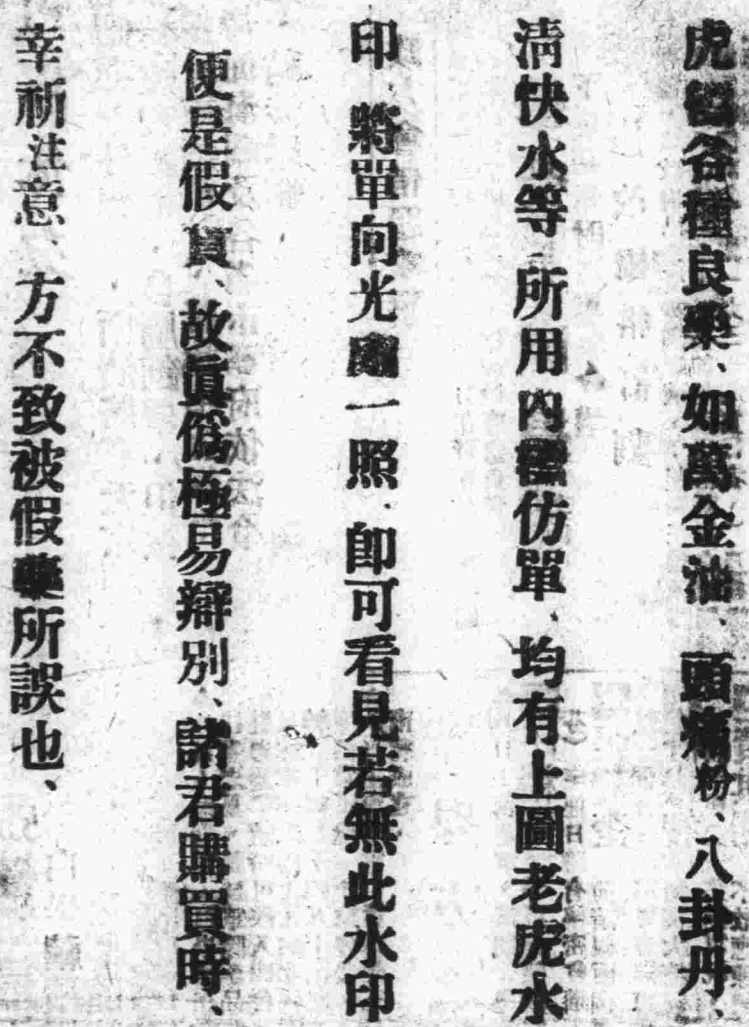 虎標各種良藥、如萬金油、頭痛粉、八卦丹、
清快水等、所用內襯仿單、均有上圖老虎水
印、將單向光處一照、卽可看見若無此水印
便是假貨、故眞僞極易辯別、諸君購買時、
幸祈注意、方不致被假藥所誤也、